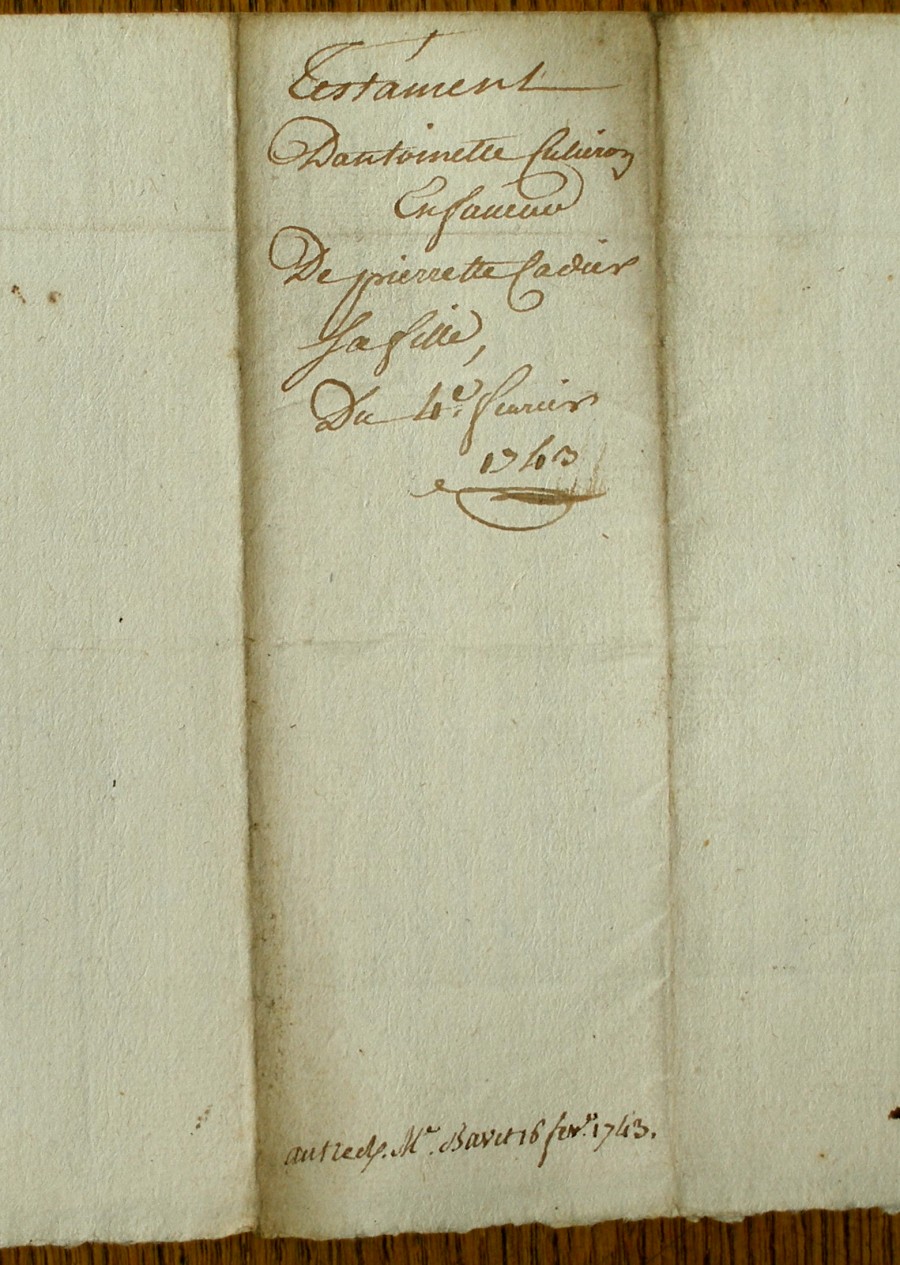 Testament
Dantoinette
En faueur
De pierrette Cadier
sa fille,
Du 4e. feurier
1743
autre Me. Bavet 16 fevr. 1743.